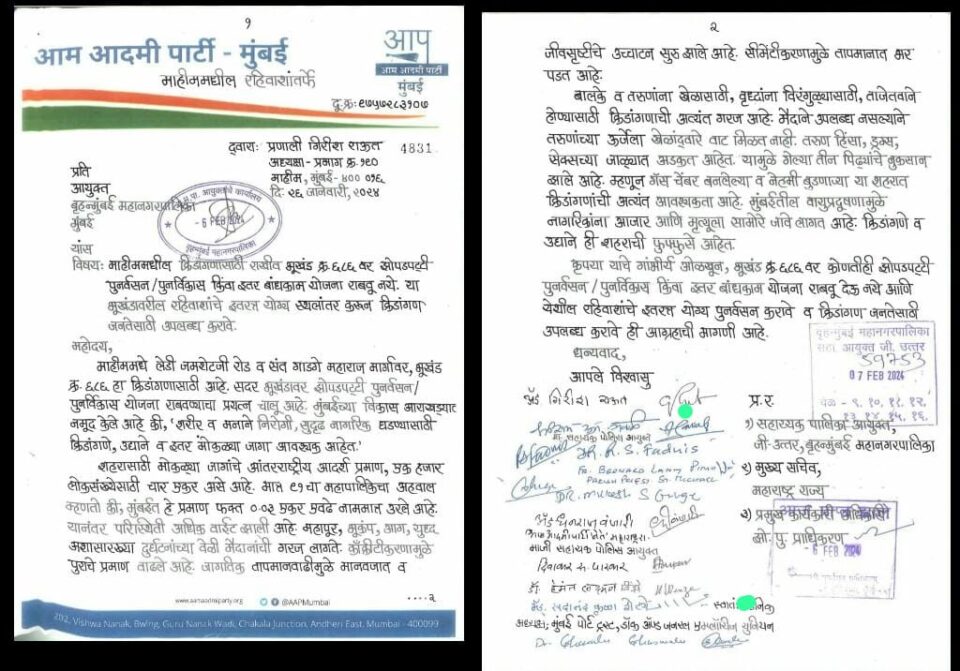 १
आम आदमी पार्टी - मुंबई
आप
आम आदमी पार्टी
मुंबई
माहीममधील रहिवाशांतर्फे
दू.क्र: ९७५७२८३१०७
द्वाराः प्रणाली गिरीश राऊत
4831
अध्यक्षा - प्रभाग क्र. १९०
माहीम, मुंबई - ४०० ०१६
दि. २६ जानेवारी, २०२४
प्रति
आयुक्त
बृहन्मुंबई महानगरपालिका
मुंबई
- 6 FEB 2024
बृहन्मुंबई महानगरपालिका
यांस
विषय: माहीममधील क्रिडांगणासाठी राखीव भूखंड क्र. ६८६ वर झोपडपट्टी
पुनर्वसन/पुनर्विकास किंवा इतर बांधकाम योजना राबवू नये. या
भूखंडावरील रहिवाशांचे इतरत्र योग्य स्थलांतर करून क्रिडांगण
जनतेसाठी उपलब्ध करावे.
महोदय,
माहीममधे लेडी जमशेटजी रोड व संत गाडगे महाराज मार्गावर, भूखंड
क्र. ६८६ हा क्रिडांगणासाठी आहे. सदर भूखंडावर झोपडपट्टी पुनर्वसन/
पुनर्विकास योजना राबवण्याचा प्रयत्न चालू आहे. मुंबईच्या विकास आराखड्यात
नमूद केले आहे की, 'शरीर व मनाने निरोगी, सुदृढ नागरिक घडण्यासाठी
क्रिडांगणे, उद्याने व इतर मोकळ्या जागा आवश्यक आहेत.'
शहरासाठी मोकळ्या जागांचे आंतरराष्ट्रीय आदर्श प्रमाण, एक हजार
लोकसंख्येसाठी चार एकर असे आहे. मात्र ९१ चा महापालिकेचा अहवाल
म्हणतो की, मुंबईत हे प्रमाण फक्त ०.०३ एकर एवढे नाममात्र उरले आहे.
यानंतर परिस्थिती अधिक वाईट झाली आहे. महापूर, भूकंप, आग, युध्द
अशासारख्या दुर्घटनांच्या वेळी मैदानांची गरज लागते. काँक्रीटीकरणामुळे
पुराचे प्रमाण वाढले आहे. जागतिक तापमानवाढीमुळे मानवजात व
....२
www.aamaadmiparty.org @AAPMumbai
202, Vishwa Nanak, Bwing, Guru Nanak Wadi, Chakala Junction, Andheri East, Mumbai - 400099
२
जीवसृष्टीचे उच्चाटन सुरु झाले आहे. सीमेंटीकरणामुळे तापमानात भर
पडत आहे.
बालके व तरुणांना खेळासाठी, वृध्दांना विरंगुळ्यासाठी, ताजेतवाने
होण्यासाठी क्रिडांगणाची अत्यंत गरज आहे. मैदाने उपलब्ध नसल्याने
तरुणांच्या ऊर्जेला खेळांद्वारे वाट मिळत नाही. तरुण हिंसा, ड्रग्स,
सेक्सच्या जाळ्यात अडकत आहेत. यामुळे गेल्या तीन पिढ्यांचे नुकसान
झाले आहे. म्हणून गॅस चेंबर बनलेल्या व नेहमी बुडणाऱ्या या शहरात
क्रिडांगणांची अत्यंत आवश्यकता आहे. मुंबईतील वायुप्रदूषणामुळे
नागरिकांना आजार आणि मृत्यूला सामोरे जावे लागत आहे. क्रिडांगणे व
उद्याने ही शहराची फुफ्फुसे आहेत.
कृपया याचे गांभीर्य ओळखून, भूखंड क्र. ६८६ वर कोणतीही झोपडपट्टी
पुनर्वसन/पुनर्विकास किंवा इतर बांधकाम योजना राबवू देऊ नये आणि
येथील रहिवाशांचे इतरत्र योग्य पुनर्वसन करावे व क्रिडांगण जनतेसाठी
उपलब्ध करावे ही आग्रहाची मागणी आहे.
धन्यवाद,
आपले विश्वासु
बृहन्मुंबई महानगरपालिका
सहा. आयुक्त जी. उत्तर
59753
07 FEB 2024
वेळ - ९. १०. ११. १२.
१३. १४. १५. १६.
ॲड गिरीश राऊत
मा. सहाय्यक पोलिस आयुक्त
DR. R. S. Fadnis
DR. Mukesh S
माजी सहायक पोलिस आयुक्त
अध्यक्ष; मुंबई पोर्ट ट्रस्ट, डॉक अँड जनरल एम्प्लॉयीज युनियन
प्र.र
१) सहाय्यक पालिका आयुक्त,
जी-उत्तर, बृहन्मुंबई महानगरपालिका
२) मुख्य सचिव,
महाराष्ट्र राज्य
३) प्रमुख कार्यकारी अधिकारी
झो. पु. प्राधिकरण
- 6 FEB 2024